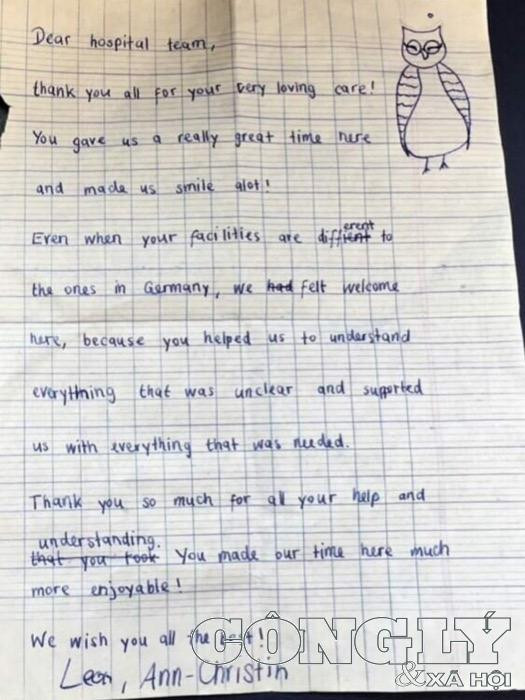 Dear hospital team,
thank you all for your very loving care!
You gave us a really great time here
and made us smile alot!
Even when your facilities are different to
the ones in Germany, we had felt welcome
here, because you helped us to understand
everything that was unclear and supported
us with everything that was needed.
Thank you so much for all your help and
understanding.
that you took You made our time here much
more enjoyable!
We wish you all the best!
Leon, Ann-Christin
CÔNG LÝ
& XÃ HỘI